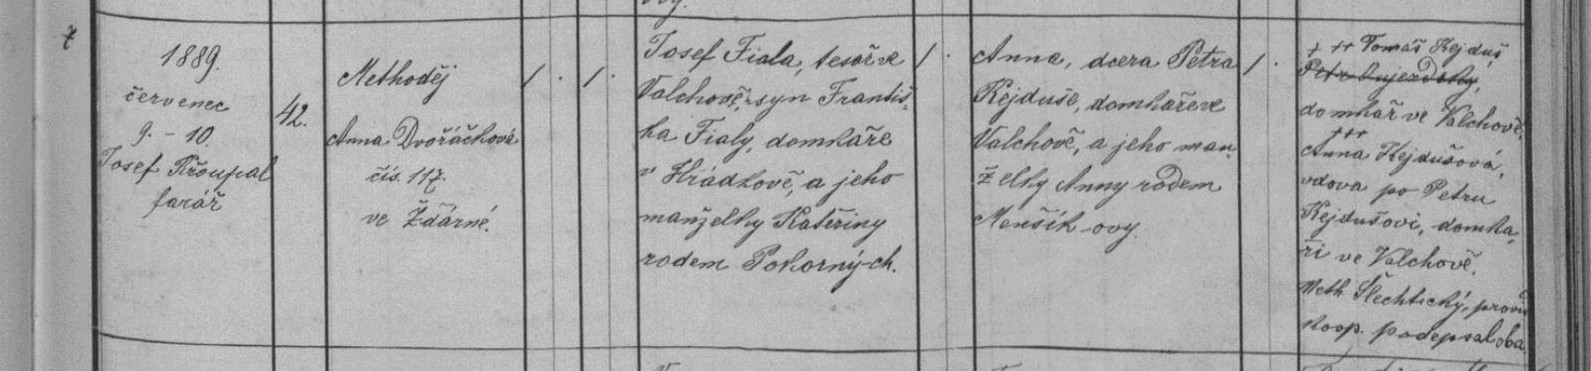 ž
1889.
červenec
9. – 10.
Josef Křoupal
farář
42.
Methoděj
Anna Dvořáčková
čís. 117.
ve Žďárné.
/ .
/ .
Josef Fiala, tesař ve
Valchově, syn Františ-
ka Fialy, domkáře
v Hrádkově, a jeho
manželky Kateřiny
rodem Pokorných.
/ .
Anna, dcera Petra
Kejduše, domkáře ve
Valchově, a jeho man-
želky Anny rodem
Menšík-ovy.
/ .
+ ++ Tomáš Kejduš,
Petr
domkář ve Valchově,
+++
Anna Kejdušová,
vdova po Petru
Kejdušovi, domka-
ři ve Valchově.
Meth. Šlechtický, provis.
koop. podepsal oba